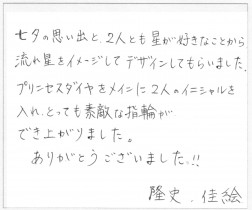 七夕の思い出と、2人とも星が好きなことから
流れ星をイメージしてデザインしてもらいました。
プリンセスダイヤをメインに2人のイニシャルを
入れ、とっても素敵な指輪が
でき上がりました。
ありがとうございました!!
隆史、佳絵